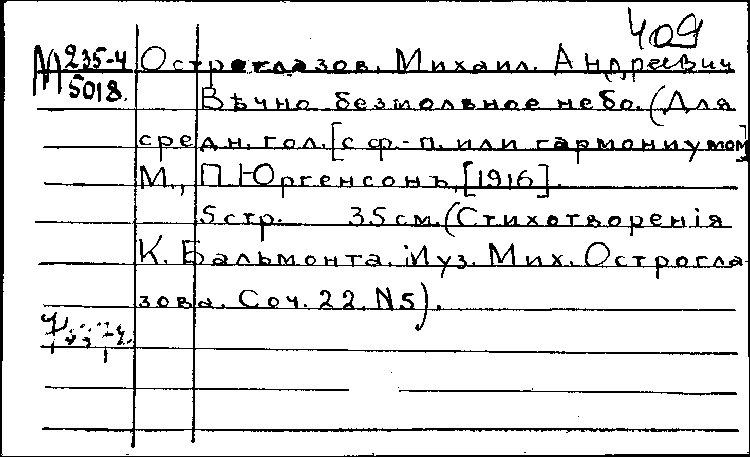 409
М 235-4 Остроглазов, Михаил Андреевич
5018. Вѣчно безмолвное небо. (Для
средн. гол. [с ф.-п. или гармониумом]
М., П. Юргенсонъ, [1916].
5 стр. 35 см. (Стихотворенія
К. Бальмонта. Муз. Мих. Острогла-
зова. Соч. 22. N5).